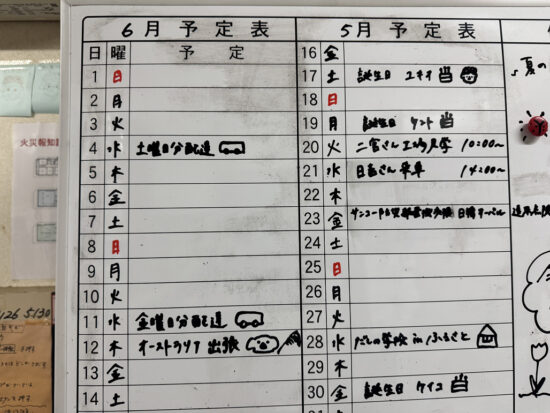 6月予定表
日 曜 予定
1 日
2 月
3 火
4 水 土曜日分配達
5 木
6 金
7 土
8 日
9 月
10 火
11 水 金曜日分配達
12 木 オーストラリア 出張
13 金
14 土
5月予定表
16 金
17 土 誕生日 ユキオ
18 日
19 月 誕生日 ケント
20 火 二宮さん工場見学 10:00〜
21 水 14:00〜
22 木
23 金
24 土
25 日
26 月
27 火
28 水 だしの学校 in ふるさと
29 木
30 金 誕生日 ケイコ
夏の
火災報知設
5130